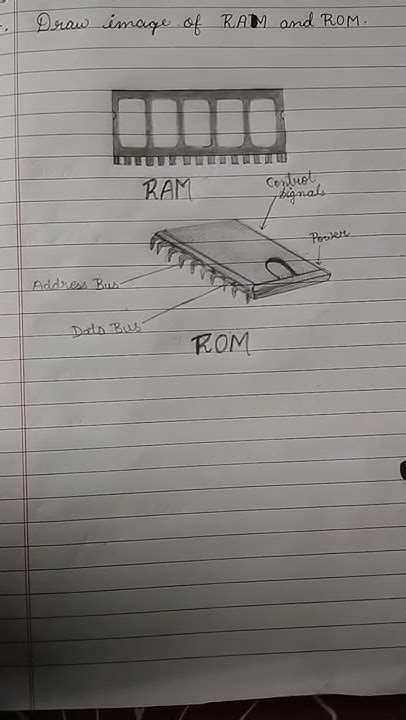 Draw image of RAM and ROM.
RAM
Control
signals
Power
Address Bus
Data Bus
ROM